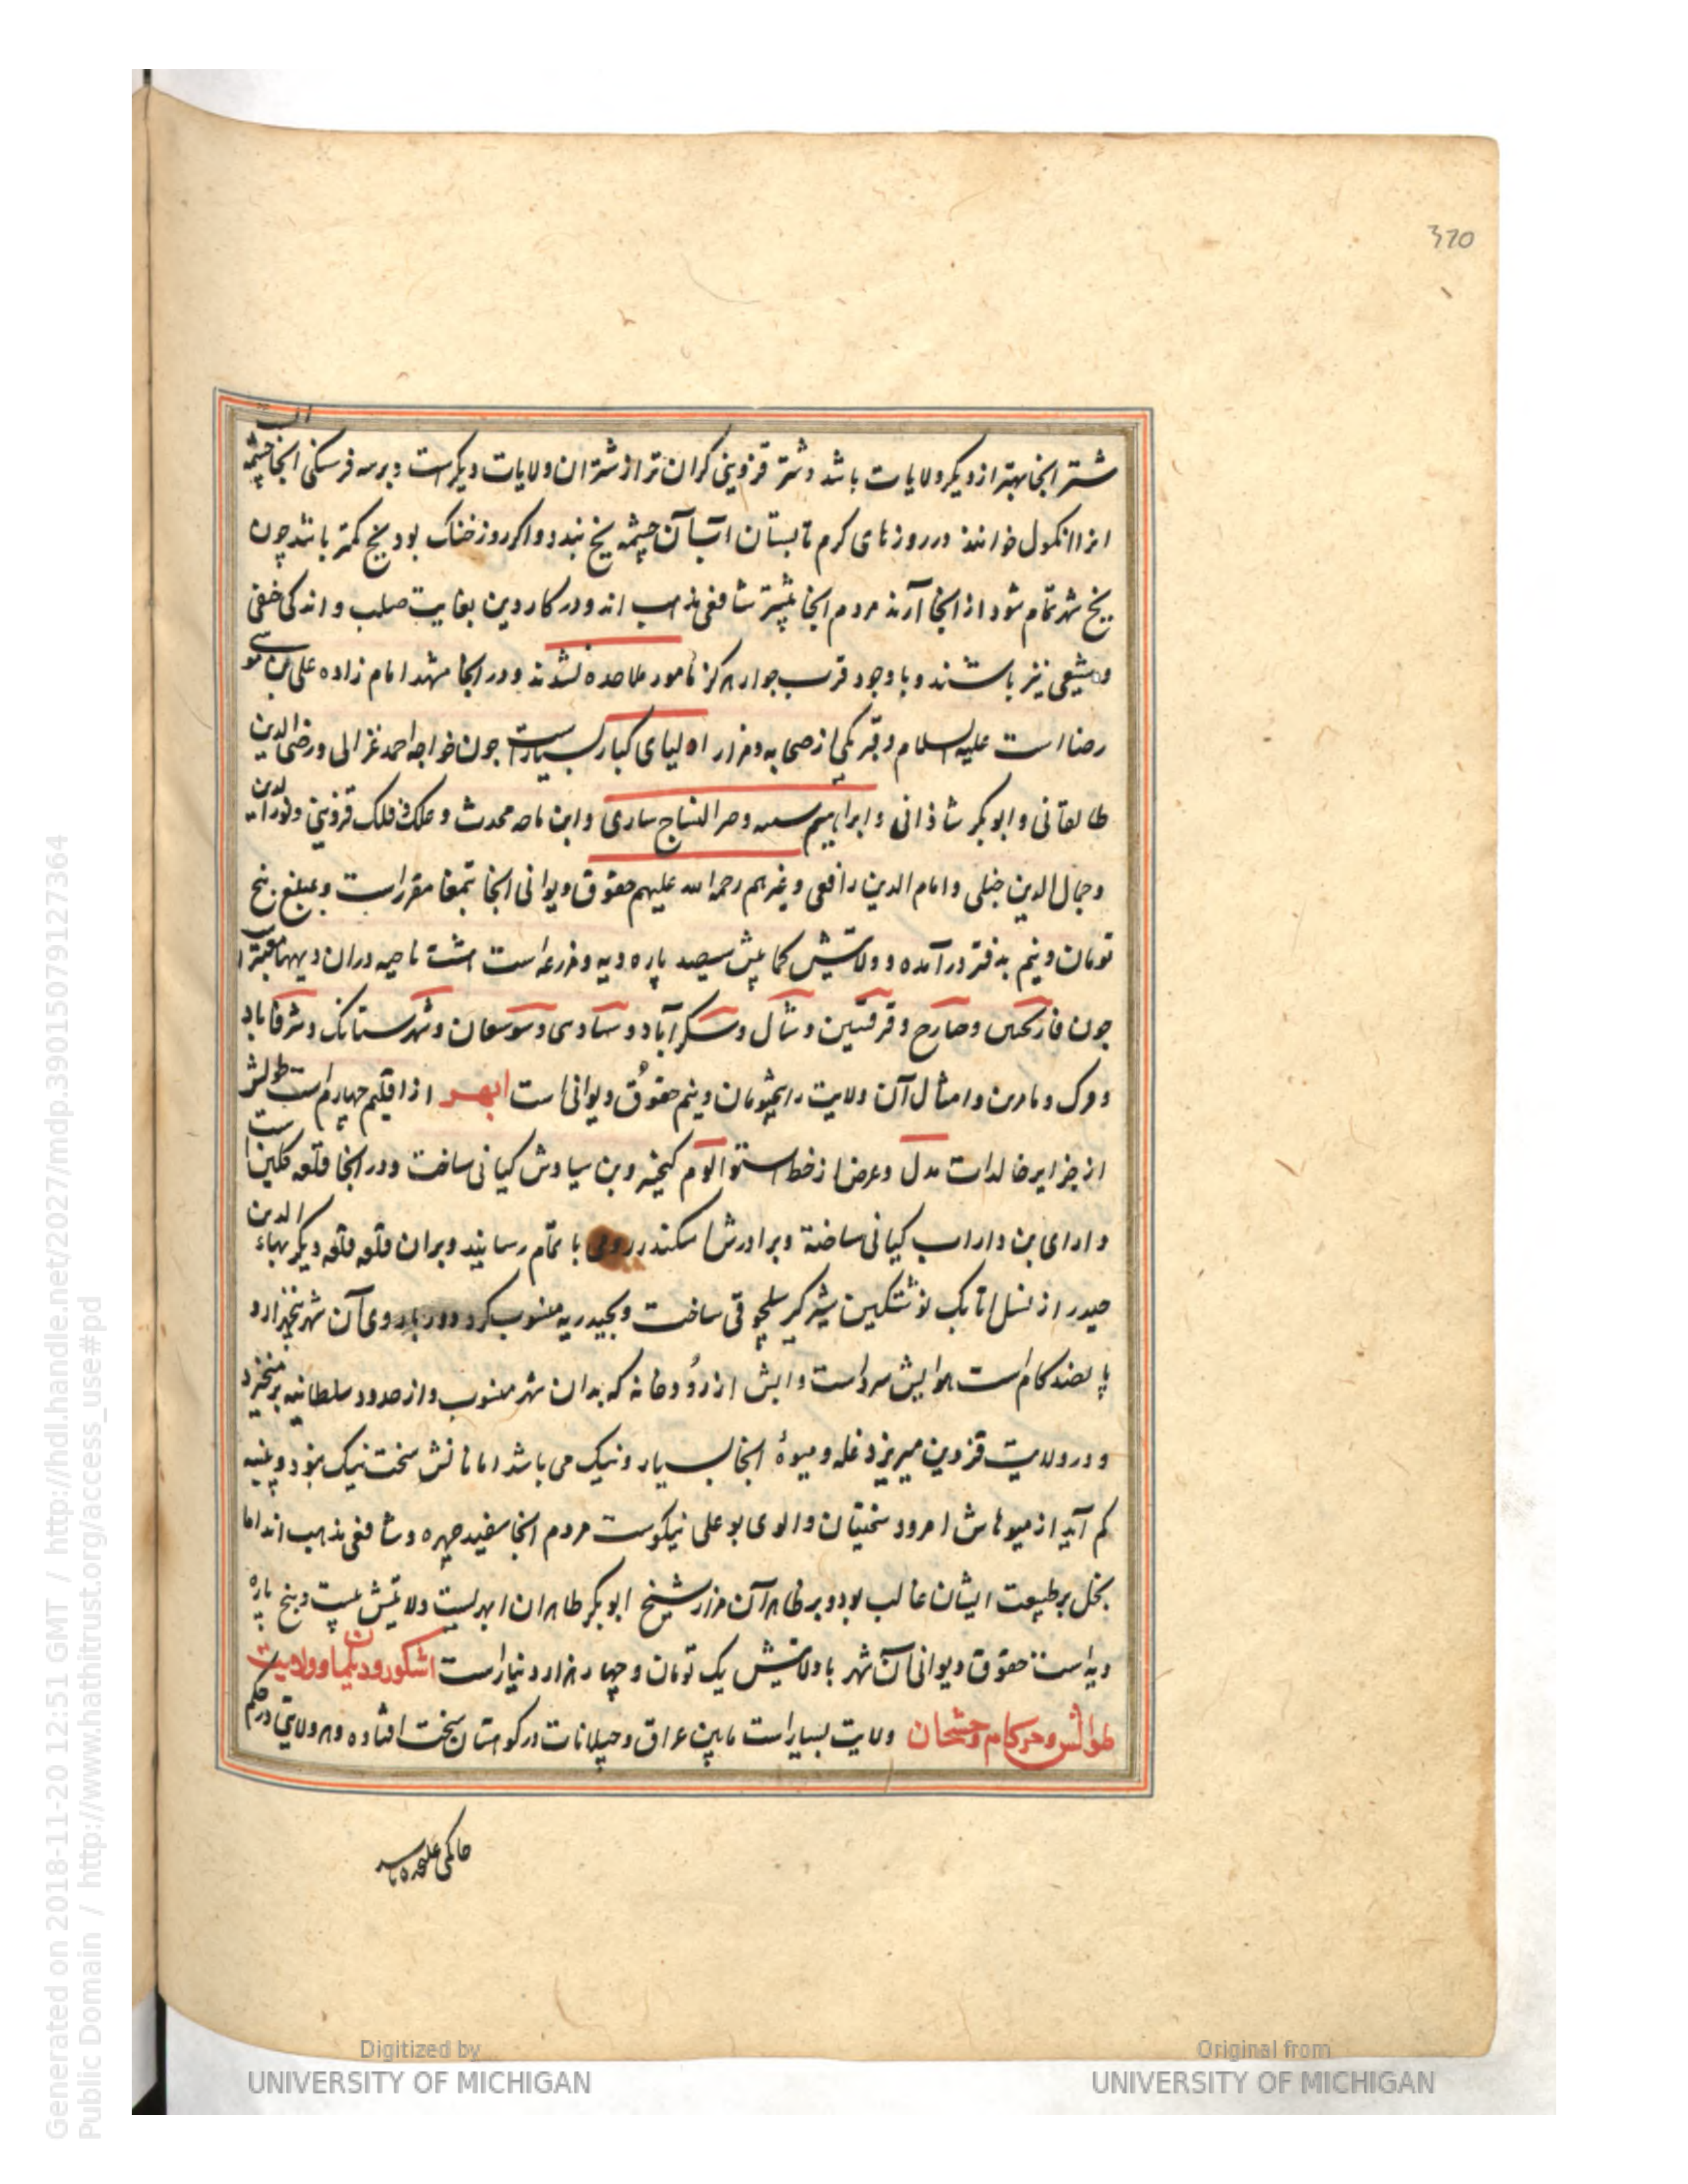 320
شتر انجا بهتر از دیگر ولایات باشد و شتر قزوینی گران تر از شتران ولایات دیگر است و بر سه فرسنگی انجا چشمه است
انرا انکول خوانند در روزهای گرم تابستان آب آن چشمه یخ بندد و اگر روز خنک بود یخ کمتر باشد چون
یخ شهر تمام شود از انجا آرند مردم انجا بیشتر شافعی مذهب اند و در کار دین بغایت صلب و اندکی حنفی
و شیعی نیز باشند و با وجود قرب جوار هرگز مامور ملاحده نشدند و در انجا مشهد امام زاده علی بن موسی
رضا است علیه السلام و قبر یکی از صحابه و مزار اولیای کبار بسیارست چون خواجه احمد غزالی و رضی الدین
طالقانی و ابوبکر شاذانی و ابراهیم النساج ساری و ابن ماجه محدث و فلک قزوینی و نور الدین
و جمال الدین جیلی و امام الدین رافعی و غیرهم رحمه الله علیهم حقوق دیوانی انجا بتمغا مقرر است و مبلغ پنج
تومان و نیم بدفتر درآمده و ولایتش کمابیش سیصد پاره دیه و مزرعه است هشت ناحیه دران دیهها معتبر
چون و قرقسین و شال و سکزآباد و و سوسقان و شهرستانک و شرفاباد
و امثال آن ولایت را پنج تومان و نیم حقوق دیوانی است ابهر از اقلیم چهارم است طولش
از جزایر خالدات و عرض از خط استوا کیخسرو بن سیاوش کیانی ساخت و در انجا قلعه گلین است
دارای بن داراب کیانی ساخته و برادرش اسکندر رومی با تمام رسانید و بران قلعه قلعه دیگر بهاء الدین
حیدر از نسل اتابک نوشتکین شیرگیر سلجوقی ساخت و بحیدریه منسوب کرد دور باروی آن شهر پنجهزار و
پانصد گام است هوایش سرد است و آبش از رودخانه که بدان شهر منسوب و از حدود سلطانیه برمیخیزد
و در ولایت قزوین میریزد غله و میوهٔ انجا بسیار و نیک می باشد اما نانش سخت نیک نبود و پنبه
کم آید از میوهاش امرود سجستان و الوی بوعلی نیکوست مردم انجا سفید چهره و شافعی مذهب اند اما
بخل بر طبیعت ایشان غالب بود و بر ظاهر آن مزار شیخ ابوبکر طاهران ابهریست ولایتش بیست و پنج پاره
دیه است حقوق دیوانی آن شهر با ولایتش یک تومان و چهار هزار دینار است اشکور و دیلمان و ولایت
طوالش و خرکام و خشجان ولایت بسیار است مابین عراق و جیلانات در کوهستان سخت افتاده و هر ولایتی در حکم
حاکمی علیحده باشد
Generated on 2018-11-20 12:51 GMT / http://hdl.handle.net/2027/mdp.39015079127364
Public Domain / http://www.hathitrust.org/access_use#pd
Digitized by
UNIVERSITY OF MICHIGAN
Original from
UNIVERSITY OF MICHIGAN